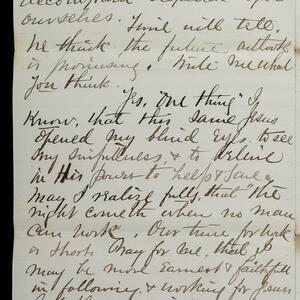 ourselves. Time will tell.
We think the future outlook
is promising. Write me what
You think.
Yes, "One thing" I
Know, that this same Jesus
opened my blind Eyes, to see
my sinfulness, & to believe
in His power to help & save.
may I realize fully, that "the
night cometh when no man
can work". Our time for work
is short. Pray for me, that I
may be more Earnest & faithful
in following & working for Jesus